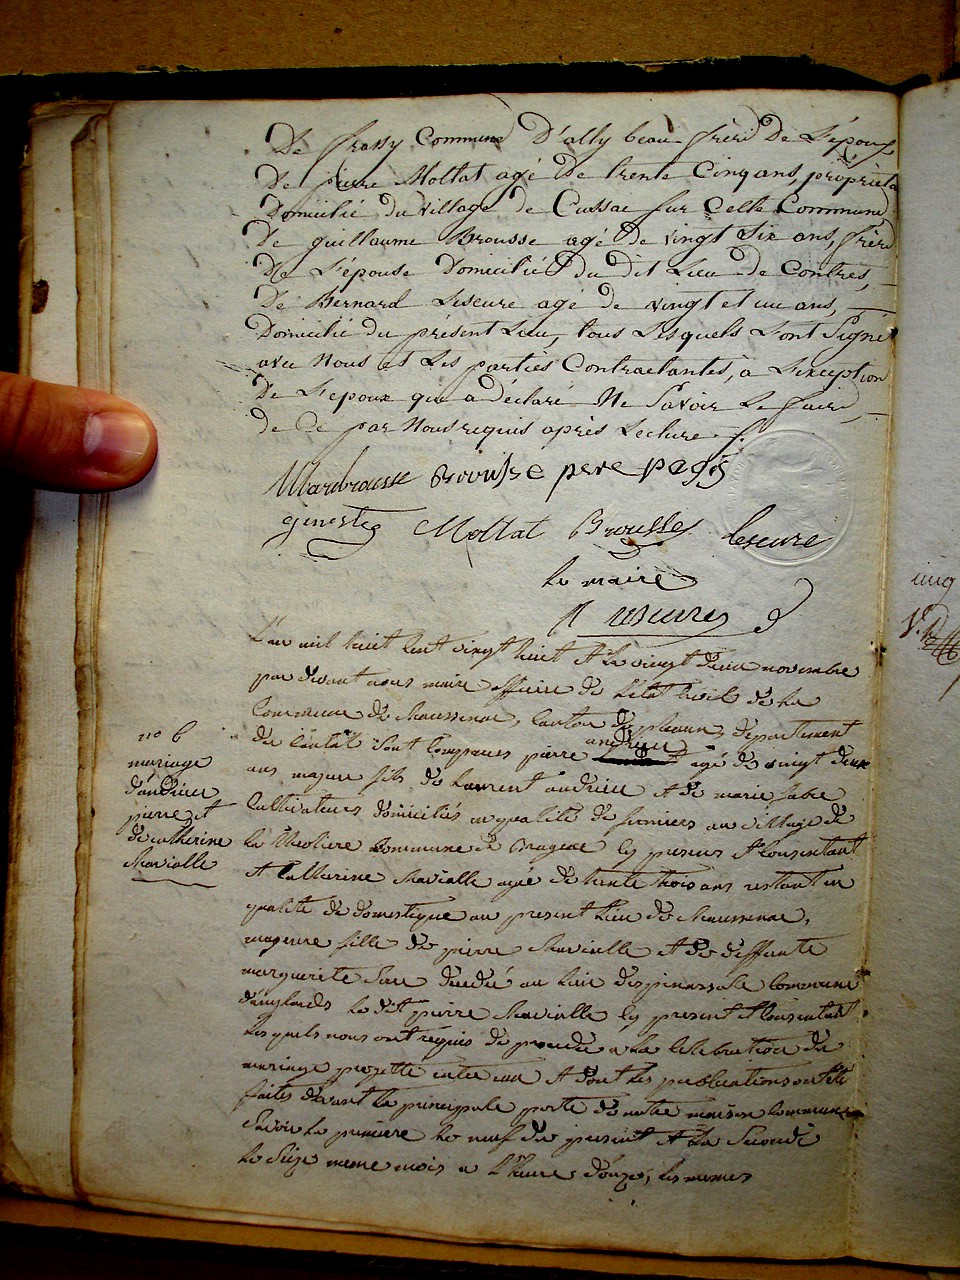 De frassy Commune D'ally beau frère De L'époux
De pierre Mollat agé De trente Cinq ans, propriéta
Domicilié du village de Cussac sur Cette Commune
De guillaume Brousse agé de vingt Six ans, frère
De L'épouse Domicilié du dit Lieu de Contres,
De Bernard Lescure agé de vingt et un ans,
Domicilié du présent Lieu, tous Lesquels Sont Signé
avec Nous et Les parties Contractantes, a L'exception
De L'epoux qui a déclaré Ne Savoir Le faire,
de Ce par Nous requis après Lecture.
Brousse pere pagis
Mollat Brousse lescure
Le maire
L'an mil huit cent vingt huit et le vingt deux novembre
par devant nous maire officier de l'état civil de la
Commune de chaussenac, canton de pleaux, département
andrieu
du Cantal sont comparus pierre agé de vingt deux
ans majeur fils de Laurent andrieu et de marie fabre
Cultivateurs domiciliés en qualité de fermiers au village de
la commune de Brageac ici presens et consentant
et Catherine Chavialle agée de trente trois ans restant en
qualité de domestique au present lieu de chaussenac,
majeure fille de pierre chavialle et de deffunte
marguerite décédé au lieu despinassole commune
d'anglards le dit pierre chavialle ici present et consentant
lesquels nous ont requis de proceder a la celebration du
mariage projetté entre eux et dont les publications ont été
faites devant la principale porte de notre maison commune
Savoir la premiere le neuf du present et la Seconde
le Seize meme mois a l'heure douze, les memes
no 6
mariage
d'andrieu
pierre et
de catherine
chavialle